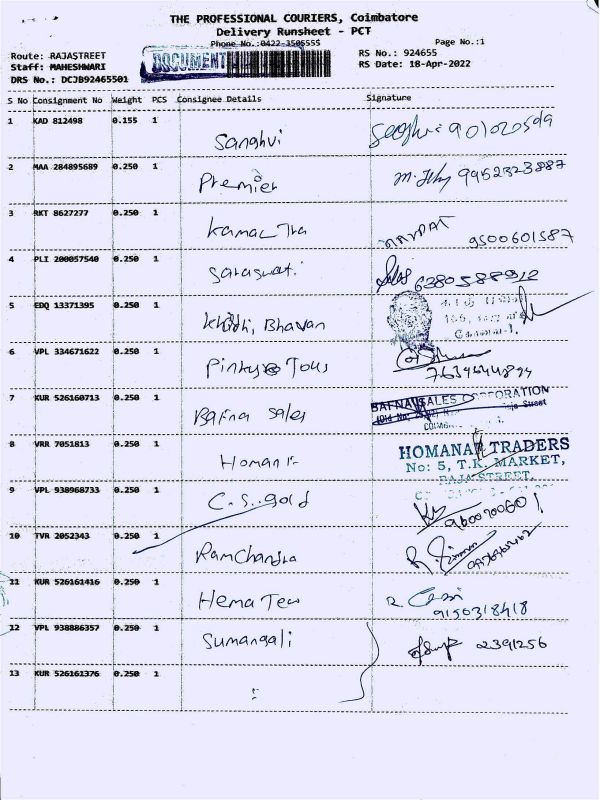 THE PROFESSIONAL COURIERS, Coimbatore
Delivery Runsheet - PCT
Phone No.:0422-3505555 Page No.:1
Route: RAJASTREET RS No.: 924655
Staff: MAHESHWARI DOCUMENT RS Date: 18-Apr-2022
DRS No.: DCJB92465501
S No Consignment No Weight PCS Consignee Details Signature
1 KAD 812498 0.155 1
Sanghvi
2 MAA 284895689 0.250 1
Premier 9952323887
3 RKT 8627277 0.250 1
Kamal 9500601587
4 PLI 200057540 0.250 1
Saraswati 6380588912
5 EDQ 13371395 0.250 1
Bhavan
6 VPL 334671622 0.250 1
Pinky Toys
7 KUR 526160713 0.250 1
Bafna Sales BAFNA SALES CORPORATION
8 VRR 7051813 0.250 1
Homan HOMANA TRADERS
No: 5, T.K. MARKET,
RAJA STREET,
9 VPL 938968733 0.250 1
C.S. gold
10 TVR 2052343 0.250 1
RamChandra
11 KUR 526161416 0.250 1
Hema Tex 9150318418
12 VPL 938886357 0.250 1
Sumangali 2391256
13 KUR 526161376 0.250 1